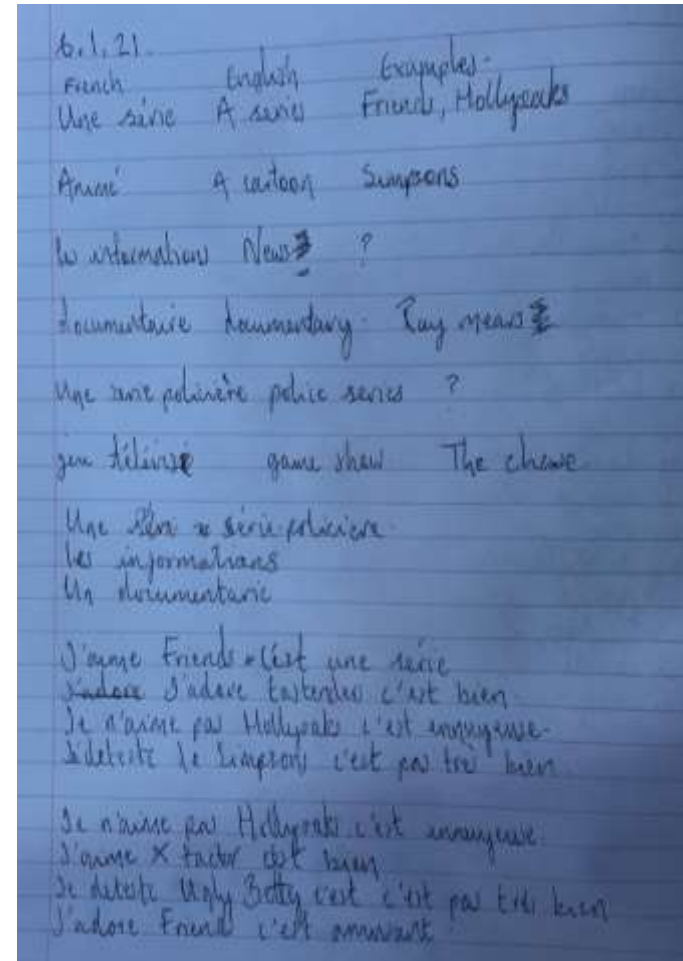 6.1.21.
French English Examples.
Une série A series Friends, Hollyoaks
Animé A cartoon Simpsons
informations News ?
documentaire documentary. Ray mears
Une série policière police series ?
jeu télévisé game show The chase
Une série policiere.
les informations
Un documentarie
J'aime Friends. C'est une serie
J'adore J'adore Eastenders c'est bien.
Je n'aime pas Hollyoaks c'est ennuyeuse.
Je deteste le Simpsons c'est pas très bien.
Je n'aime pas Hollyoaks c'est ennuyeuse.
J'aime X factor c'est bien
Je deteste Ugly Betty c'est c'est pas très bien
J'adore Friends c'est amusant.